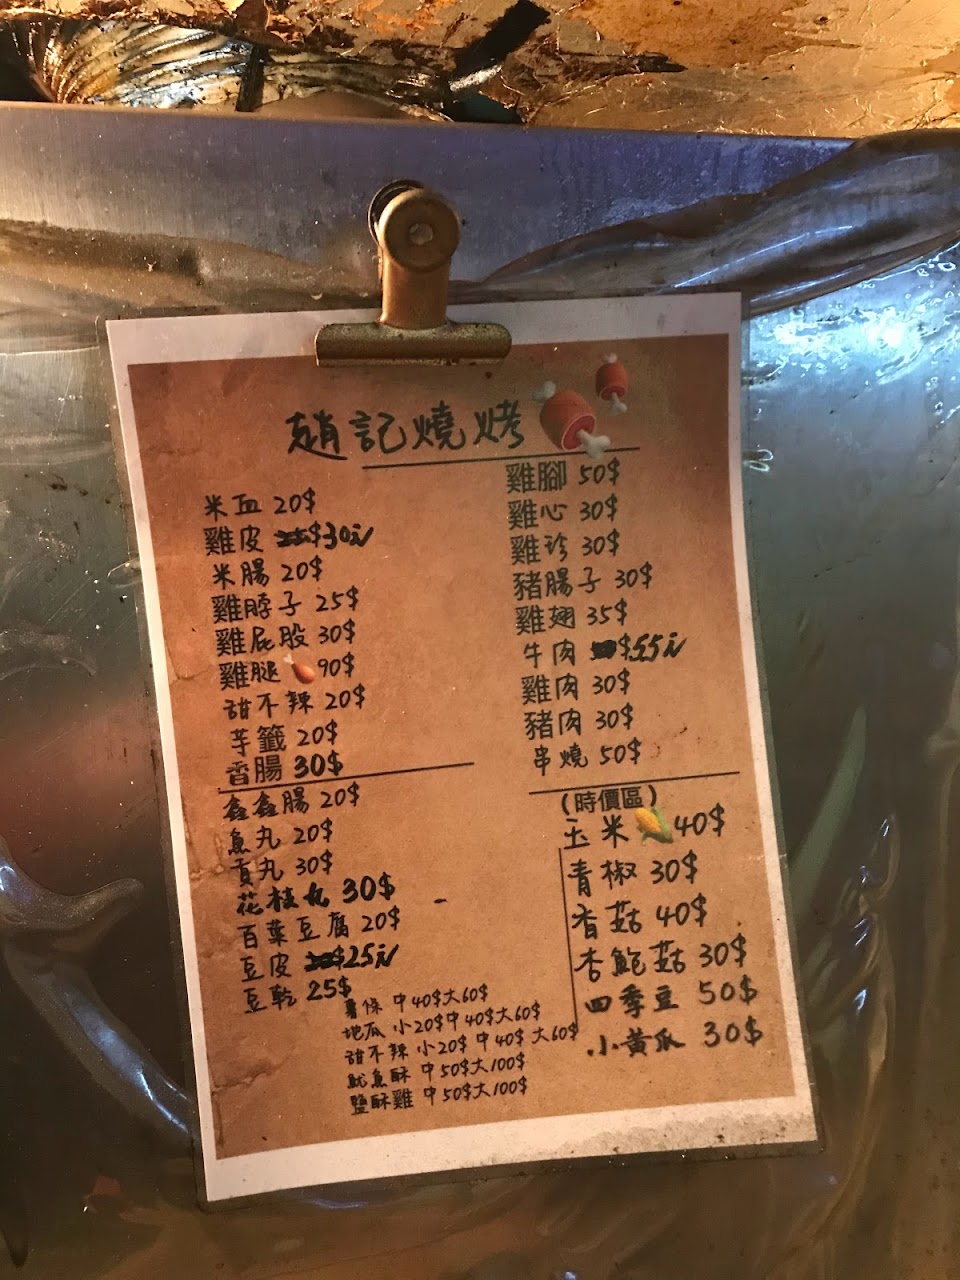 趙記燒烤
米血 20$
雞皮 $30元
米腸 20$
雞脖子 25$
雞屁股 30$
雞腿 90$
甜不辣 20$
芋籤 20$
香腸 30$
鑫鑫腸 20$
魚丸 20$
貢丸 30$
花枝丸 30$
百葉豆腐 20$
豆皮 $25元
豆乾 25$
薯條 中40$大60$
地瓜 小20$中40$大60$
甜不辣 小20$ 中40$ 大60$
魷魚酥 中50$大100$
鹽酥雞 中50$大100$
雞腳 50$
雞心 30$
雞珍 30$
豬腸子 30$
雞翅 35$
牛肉 $55元
雞肉 30$
豬肉 30$
串燒 50$
(時價區)
玉米 40$
青椒 30$
香菇 40$
杏鮑菇 30$
四季豆 50$
小黃瓜 30$